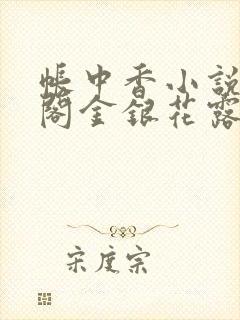 帳中香小說
閣金銀花露
宋度宗